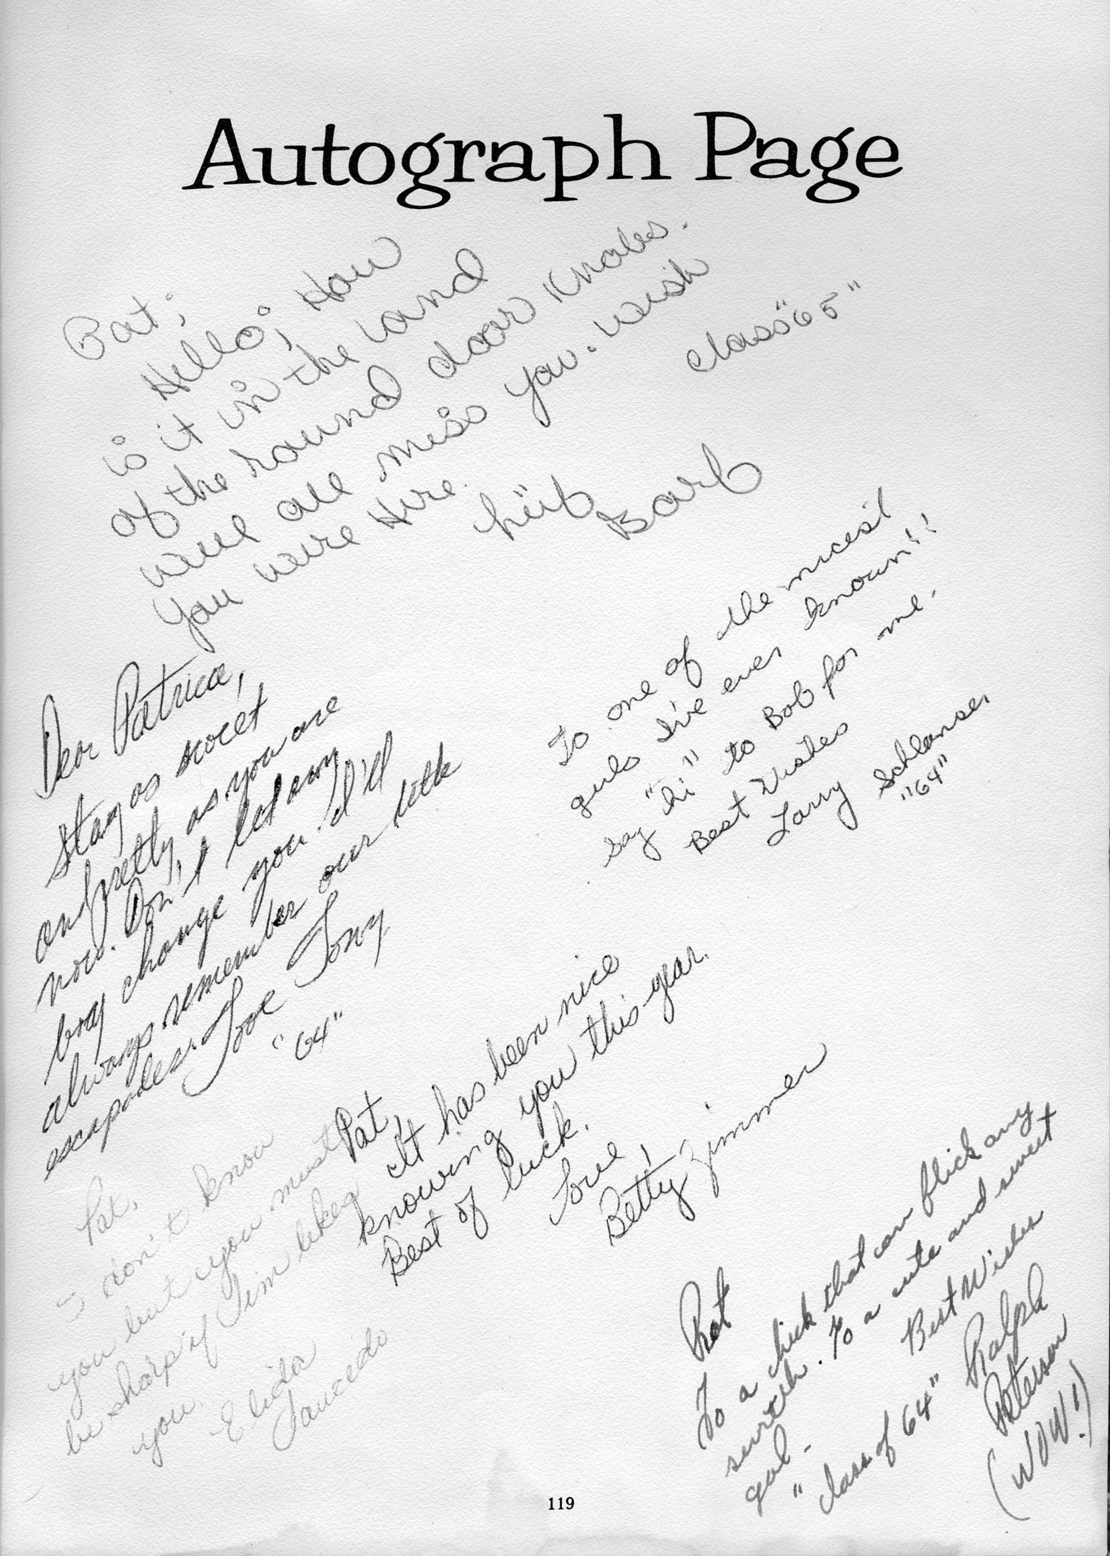 Autograph Page
Pat;
Hello; How
is it in the land
of the round door Knobs.
weve all miss you. Wish
You were Here.
Barb
class "65"
To one of the nicest
girls I've ever known!!
Say "hi" to Bob for me.
Best Wishes
Larry Schlanser
"64"
Dear Patrica,
Stay as sweet
and pretty as you are
now. Don't let any
boy change you. I'll
always remember our little
escapades. Love Tony
"64"
Pat,
It has been nice
knowing you this year.
Best of luck.
Love,
Betty Zimmer
Pat,
I don't know
you but you must
be sharp if Jim likes
you.
Elida
Saucedo
Pat
To a chick that can flick any
switch. To a cute and sweet
gal.
Best Wishes
"class of 64" Ralph
Peterson
(WOW!)
119